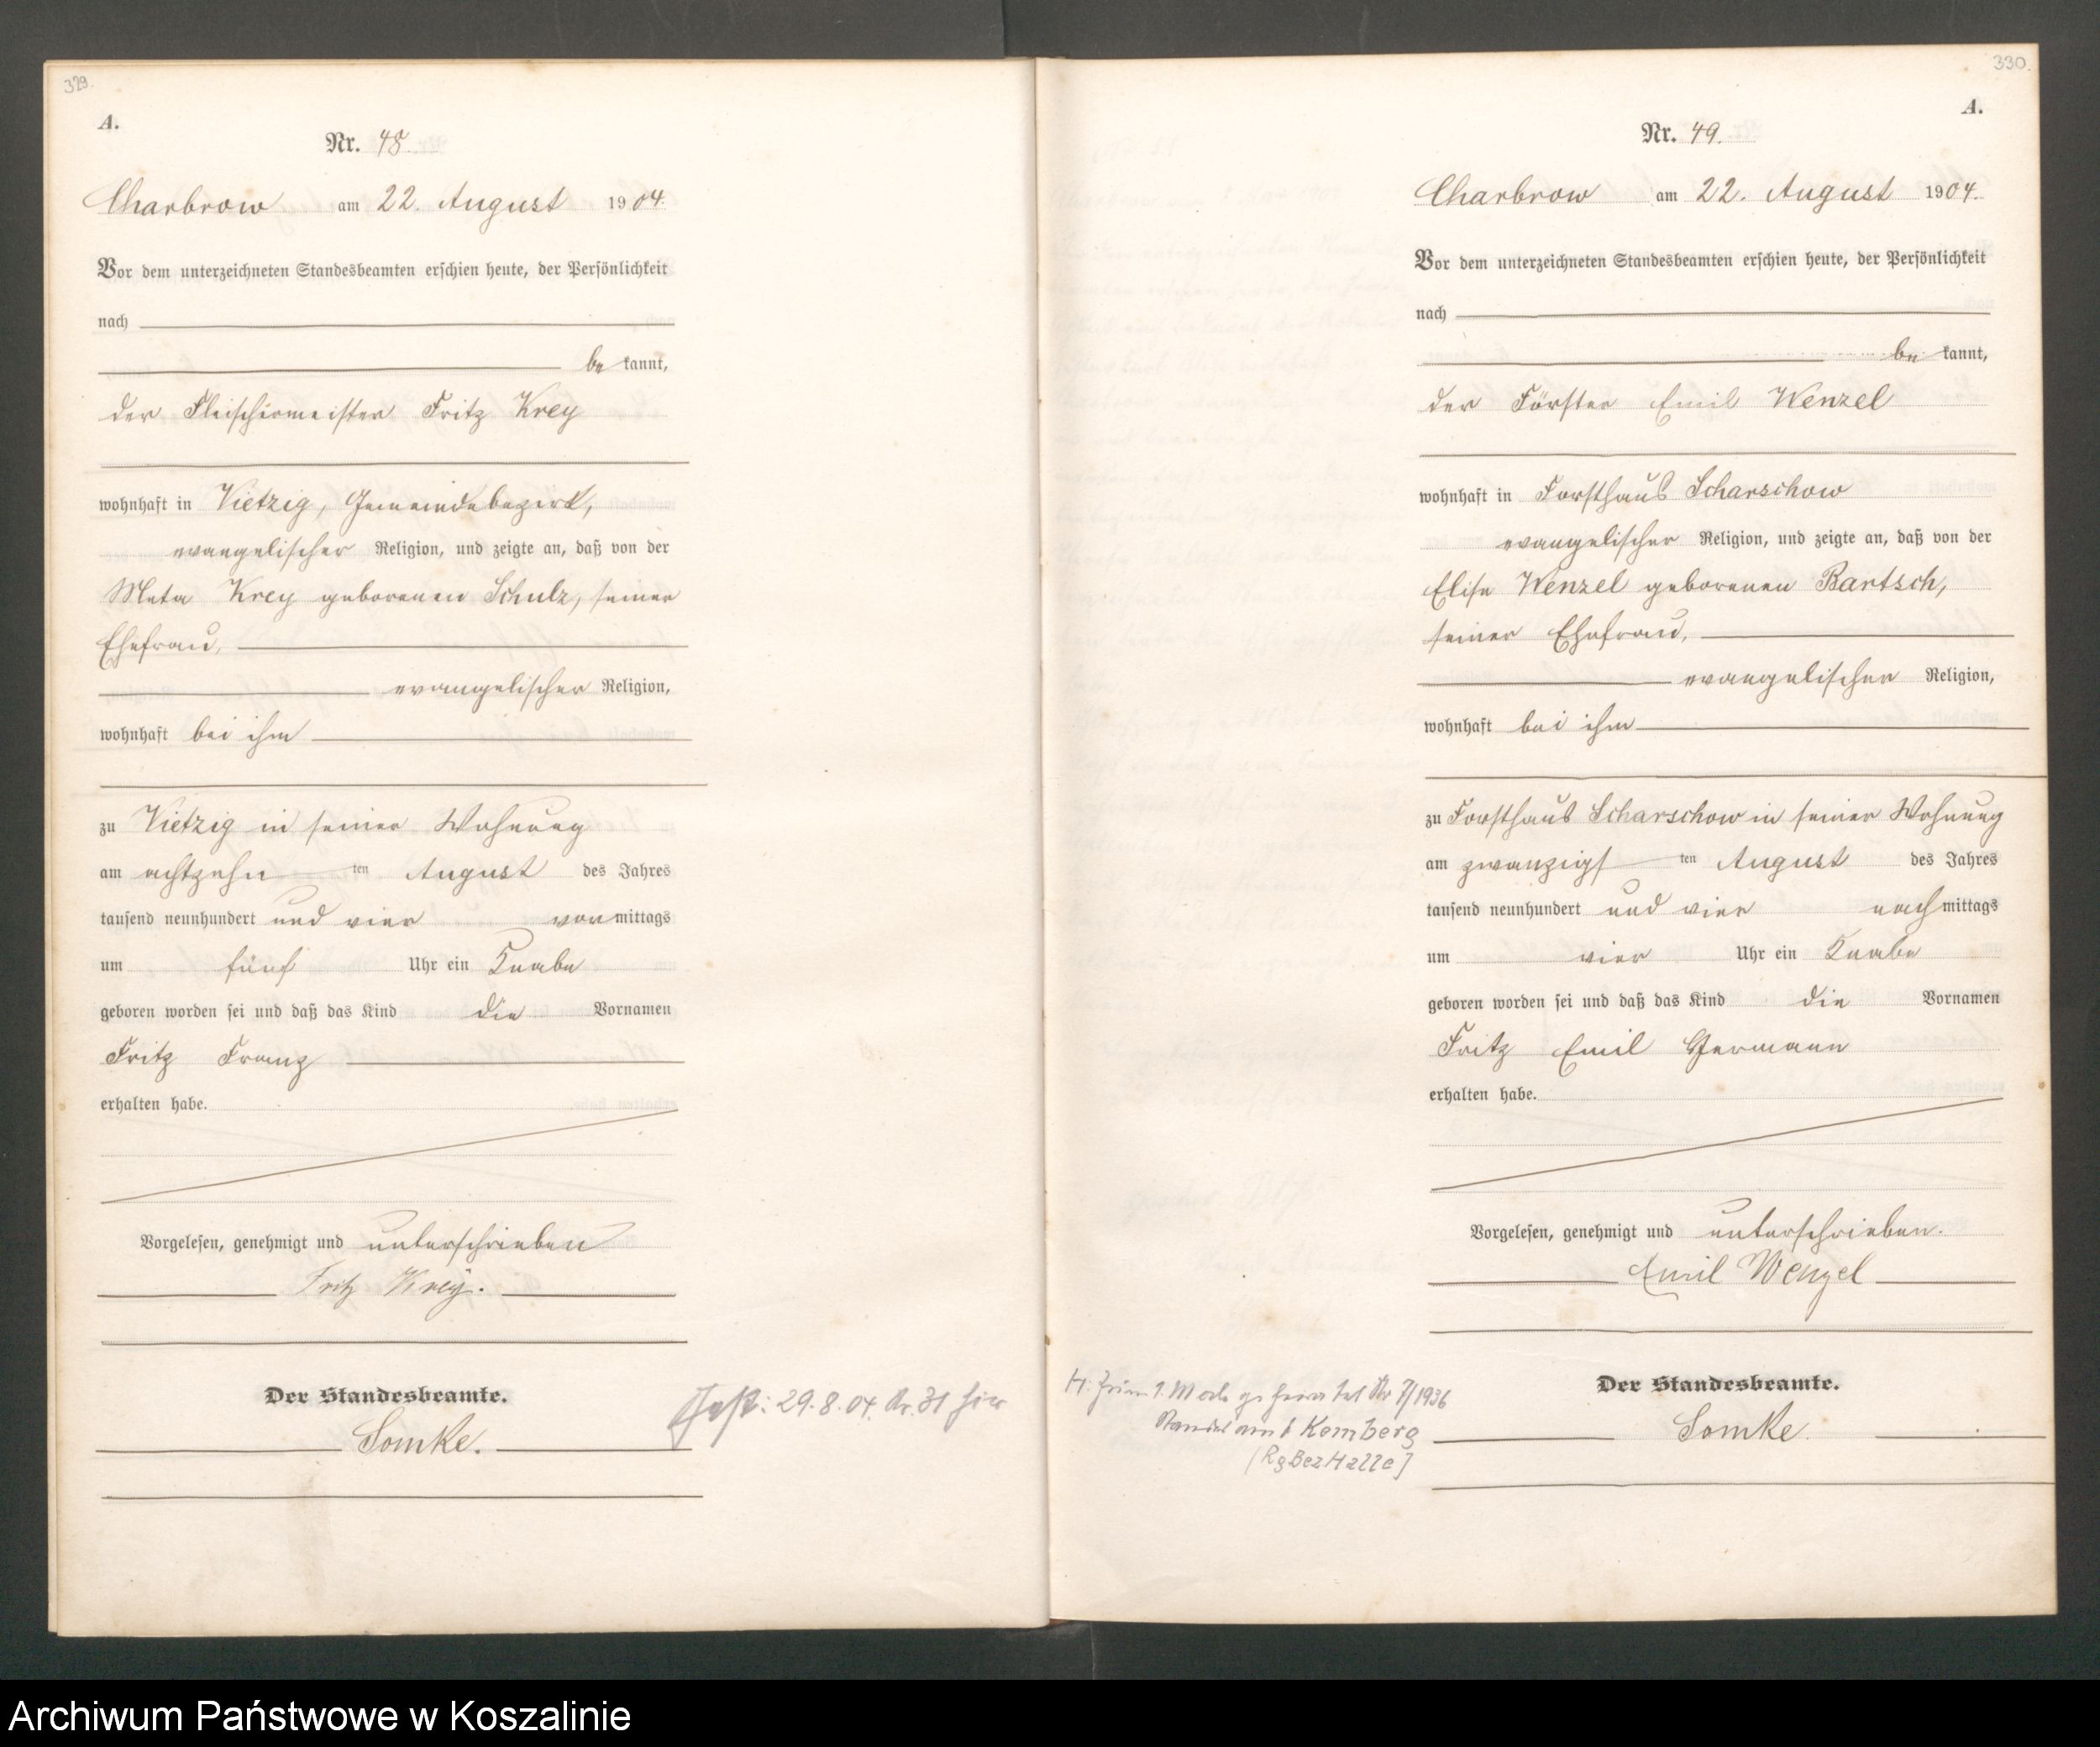 329.
A.
Nr. 48.
Charbrow am 22. August 1904.
Vor dem unterzeichneten Standesbeamten erschien heute, der Persönlichkeit
nach
be kannt,
der Fleischermeister Fritz Krey
wohnhaft in Vietzig, Gemeindebezirk,
evangelischer Religion, und zeigte an, daß von der
Meta Krey geborenen Schulz, seiner
Ehefrau,
evangelischer Religion,
wohnhaft bei ihm
zu Vietzig in seiner Wohnung
am achtzehn ten August des Jahres
tausend neunhundert und vier vor mittags
um fünf Uhr ein Knabe
geboren worden sei und daß das Kind die Vornamen
Fritz Franz
erhalten habe.
Vorgelesen, genehmigt und unterschrieben
Fritz Krey.
Der Standesbeamte.
Gest: 29.8.04. Nr. 31 hier
Somke.
330.
A.
Nr. 49.
Charbrow am 22. August 1904.
Vor dem unterzeichneten Standesbeamten erschien heute, der Persönlichkeit
nach
be kannt,
der Förster Emil Wenzel
wohnhaft in Forsthaus Scharschow
evangelischer Religion, und zeigte an, daß von der
Elise Wenzel geborenen Bartsch,
seiner Ehefrau,
evangelischer Religion,
wohnhaft bei ihm
zu Forsthaus Scharschow in seiner Wohnung
am zwanzigs ten August des Jahres
tausend neunhundert und vier nach mittags
um vier Uhr ein Knabe
geboren worden sei und daß das Kind die Vornamen
Fritz Emil Germann
erhalten habe.
Vorgelesen, genehmigt und unterschrieben.
Emil Wenzel
Der Standesbeamte.
H: zum 1. Male geheiratet Nr 7/1936
Standesamt Kemberg
(RgBez Halle)
Somke.
Archiwum Państwowe w Koszalinie